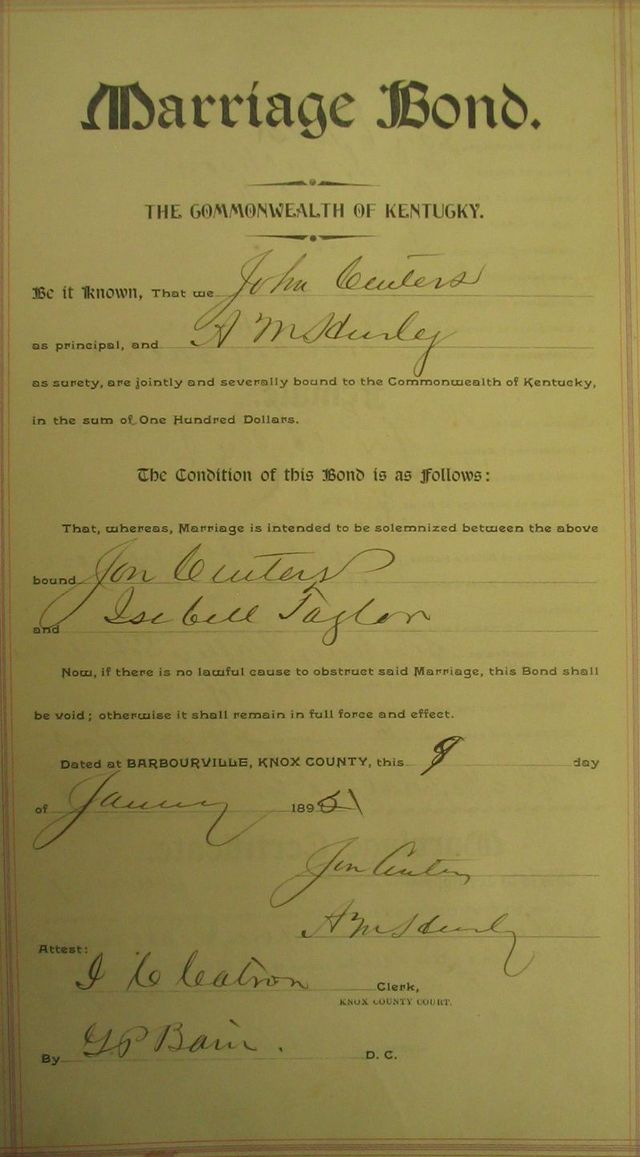 Marriage Bond.
THE COMMONWEALTH OF KENTUCKY.
Be it Known, That we John Centers
as principal, and A M Hurley
as surety, are jointly and severally bound to the Commonwealth of Kentucky,
in the sum of One Hundred Dollars.
The Condition of this Bond is as Follows:
That, whereas, Marriage is intended to be solemnized between the above
bound Jon Centers
and Isebell Taylor
Now, if there is no lawful cause to obstruct said Marriage, this Bond shall
be void; otherwise it shall remain in full force and effect.
Dated at BARBOURVILLE, KNOX COUNTY, this 9 day
of January 189
Jon Centers
A M Hurley
Attest:
Catron Clerk,
KNOX COUNTY COURT.
By G P Bain. D. C.